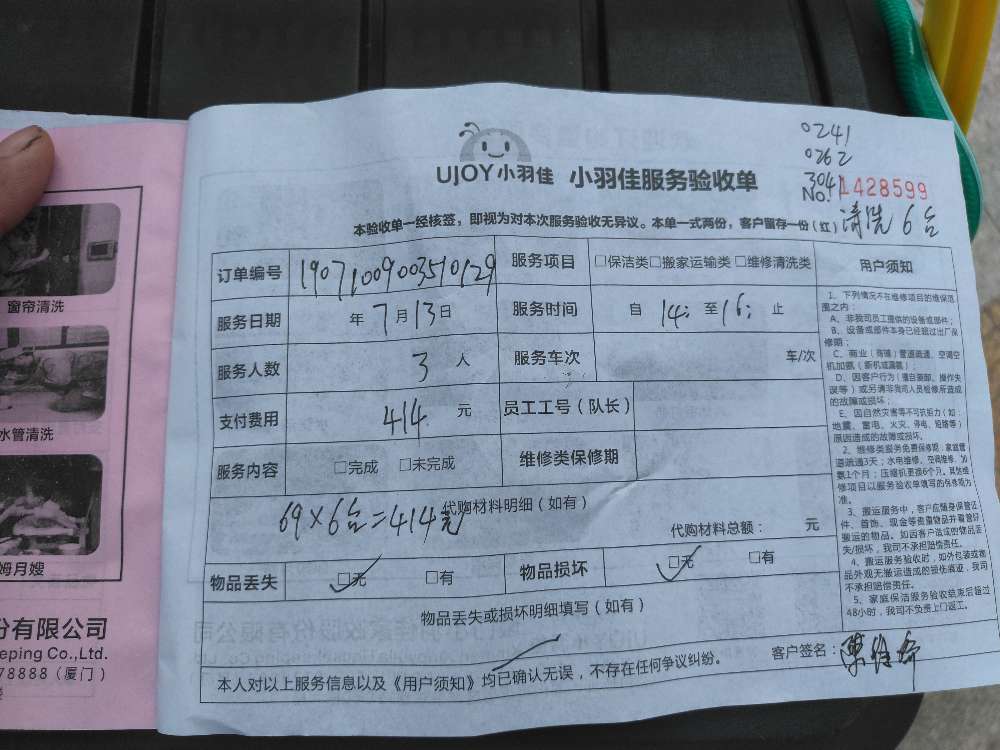 0241
0262
3041
UJOY小羽佳 小羽佳服务验收单
No. 1428599
本验收单一经核签，即视为对本次服务验收无异议。本单一式两份，客户留存一份（红）
清洗6台
订单编号 19071009003510129 服务项目 □保洁类□搬家运输类□维修清洗类 用户须知
服务日期 年7月13日 服务时间 自14:至16:止
服务人数 3人 服务车次 车/次
支付费用 414元 员工工号（队长）
服务内容 □完成 □未完成 维修类保修期
代购材料明细（如有）
69×6台=414元
代购材料总额： 元
物品丢失 □无 □有 物品损坏 □无 □有
物品丢失或损坏明细填写（如有）
本人对以上服务信息以及《用户须知》均已确认无误，不存在任何争议纠纷。
客户签名：
1、下列情况不在维修项目的维保范
围之内：
A、非我司员工提供的设备或部件；
B、设备或部件本身已经超过出厂保
修期；
C、商业（商铺）管道疏通、空调空
机加氨（新机或漏氨）
D、因客户行为（擅自装卸、操作失
误等）或另请非我司人员检修所造成
的故障或损坏；
E、因自然灾害等不可抗拒力（如：
地震、雷电、火灾、停电、短路等）
原因造成的故障或损坏。
2、维修类服务免费保修期：家庭管
道疏通3天；水电维修、空调维修、加
氨1个月；压缩机更换6个月。其他维
修项目以服务验收单填写的保修期为
准。
3、搬运服务中，客户应随身保管证
件、首饰、现金等贵重物品并看管好
搬运的物品。如因客户造成的物品丢
失/损坏，我司不承担赔偿责任。
4、搬运服务验收时，如外包装或物
品外观无搬运造成的损伤痕迹，我司
不承担赔偿责任。
5、家庭保洁服务验收结束后超过
48小时，我司不负责上门返工。
窗帘清洗
水管清洗
姆月嫂
份有限公司
eping Co.,Ltd.
78888（厦门）